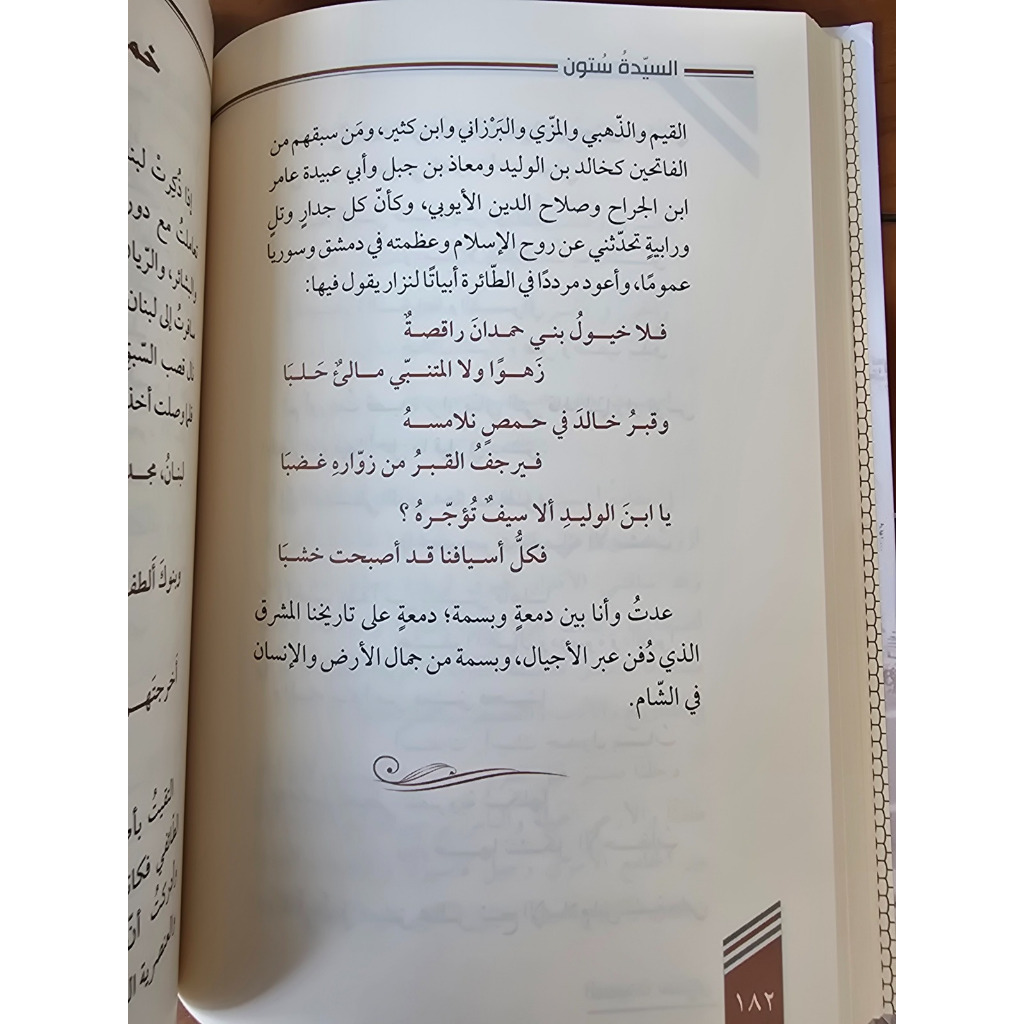 السيّدةُ سُتون
القيم والذّهبي والمزّي والبَرْزاني وابن كثير، ومَن سبقهم من
الفاتحين كخالد بن الوليد ومعاذ بن جبل وأبي عبيدة عامر
ابن الجراح وصلاح الدين الأيوبي، وكأنّ كل جدارٍ وتلٍ
ورابيةٍ تحدّثني عن روح الإسلام وعظمته في دمشق وسوريا
عمومًا، وأعود مرددًا في الطّائرة أبياتًا لنزار يقول فيها:
فلا خيولُ بني حمدانَ راقصةٌ
زَهوًا ولا المتنبّي مالئٌ حَلبَا
وقبرُ خالدَ في حمصٍ نلامسهُ
فيرجفُ القبرُ من زوّارهِ غضبَا
يا ابنَ الوليدِ ألا سيفٌ تُؤجّرهُ ؟
فكلُّ أسيافنا قد أصبحت خشبَا
عدتُ وأنا بين دمعةٍ وبسمة؛ دمعةٍ على تاريخنا المشرق
الذي دُفن عبر الأجيال، وبسمة من جمال الأرض والإنسان
في الشّام.
١٨٢
إذا ذُكِرتْ
تعاملتُ مع
سافرتُ إلى لبنان
نال قصب
فلما وصلت
لبنانُ،
وبنوكَ
التقيتُ
وأدركتُ